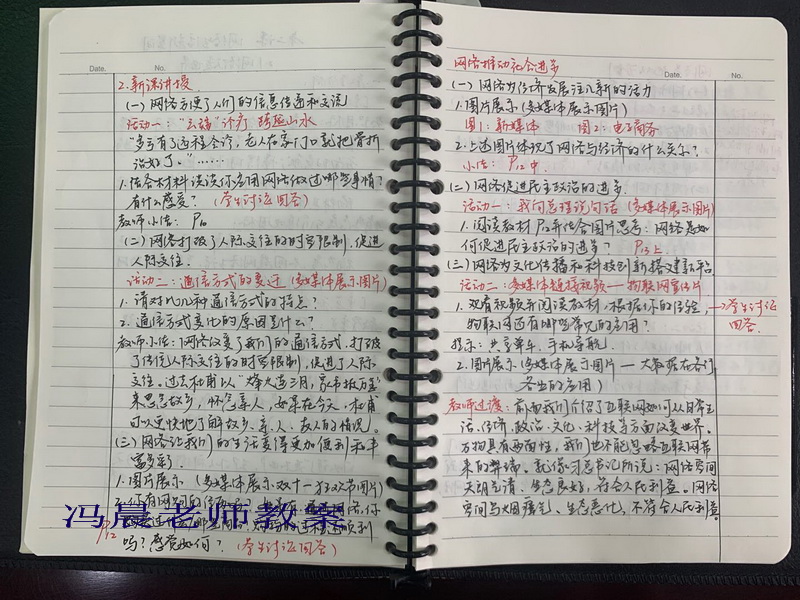 Date.
No.
2.新课讲授
(一)网络方便了人们的信息传递和交流
活动一:"云端"诊疗 跨越山水
"多亏有了远程会诊,老人在家门口就把骨折
治好了。"……
1.结合材料谈谈你会用网络做过哪些事情?
有什么感受?(学生讨论回答)
教师小结:P10
(二)网络打破了人际交往的时空限制,促进
人际交往。
活动二:通信方式的变迁(多媒体展示图片)
1.请对比几种通信方式的特点?
2.通信方式变化的原因是什么?
教师小结:网络改变了我们的通信方式,打破
了传统人际交往的时空限制,促进了人际
交往。过去杜甫以"烽火连三月,家书抵万金"
来思念故乡,怀念亲人,如果在今天,杜甫
可以更快地了解故乡、亲人、友人的情况。
(三)网络让我们的生活变得更加便利和丰
富多彩
1.图片展示(多媒体展示双十一狂欢节图片)
2.你有网购的
冯晨老师教案
P12
吗?感觉如何?(学生讨论回答)
网络推动社会进步
Date.
No.
(一)网络为经济发展注入新的活力
1.图片展示(多媒体展示图片)
图1:新媒体 图2:电子商务
2.上述图片体现了网络与经济的什么关系?
小结:P12中
(二)网络促进民主政治的进步.
活动一:我向总理说句话(多媒体展示图片)
1.阅读教材P12并结合图片思考:网络是如
何促进民主政治的进步? P13上
(三)网络为文化传播和科技创新搭建新平台
活动二:多媒体链接视频——物联网宣传片
1.观看视频并阅读教材,根据你的经验,→学生讨论
物联网还有哪些常见的应用? 回答.
提示:共享单车、手机导航.
2.图片展示(多媒体展示图片——大数据在各行
各业的应用)
教师过渡:前面我们介绍了互联网如何从日常生
活、经济、政治、文化、科技等方面改变世界。
万物具有两面性,我们也不能忽略互联网带
来的弊端。就像习总书记所说:网络空间
天朗气清、生态良好,符合人民利益。网络
空间乌烟瘴气、生态恶化,不符合人民利益